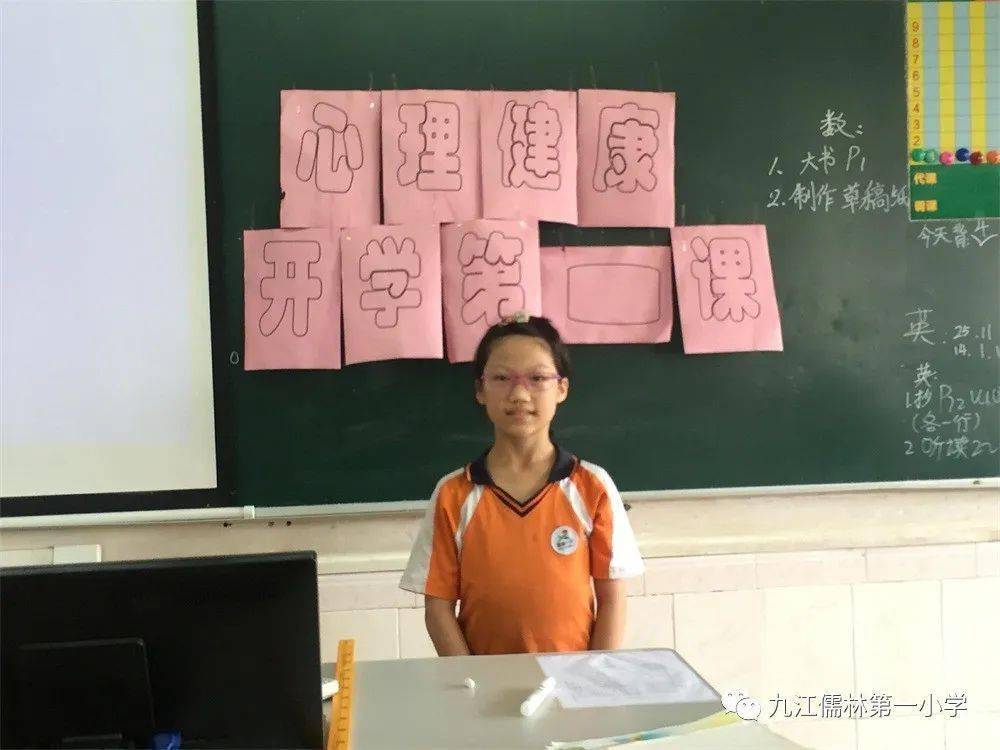 心理健康
开学第一课
数:
1. 大书P1
2. 制作草稿纸
9
8
7
6
5
4
3
2
代课
今天背
英
25.11
英
1抄P72
(各一行)
2听读
九江儒林第一小学